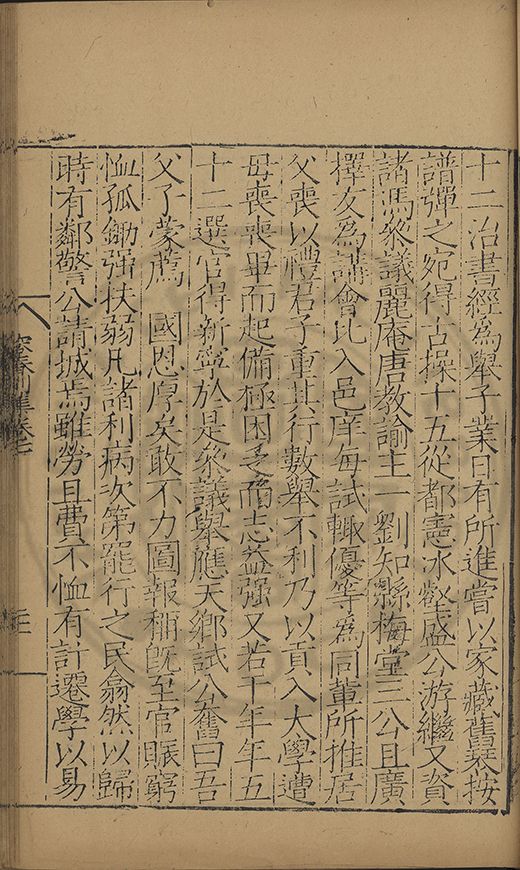 十二治書經爲舉子業日有所進嘗以家藏舊琴按
譜彈之宛得古操十五從都憲冰壑盛公游繼又資
諸馮叅議麗庵唐教諭主一劉知縣梅堂三公且廣
擇友爲講會比入邑庠每試輙優等爲同輩所推居
父喪以禮君子重其行數舉不利乃以貢入大學遭
母喪喪畢而起備極困乏而志益强又若干年年五
十二選官得新寧於是叅議舉應天鄉試公奮曰吾
父子蒙薦 國恩厚矣敢不力圖報稱旣至官賑窮
恤孤鋤强扶弱凡諸利病次第罷行之民翕然以歸
時有鄰警公請城焉雖勞且費不恤有計遷學以易
容春別集卷七